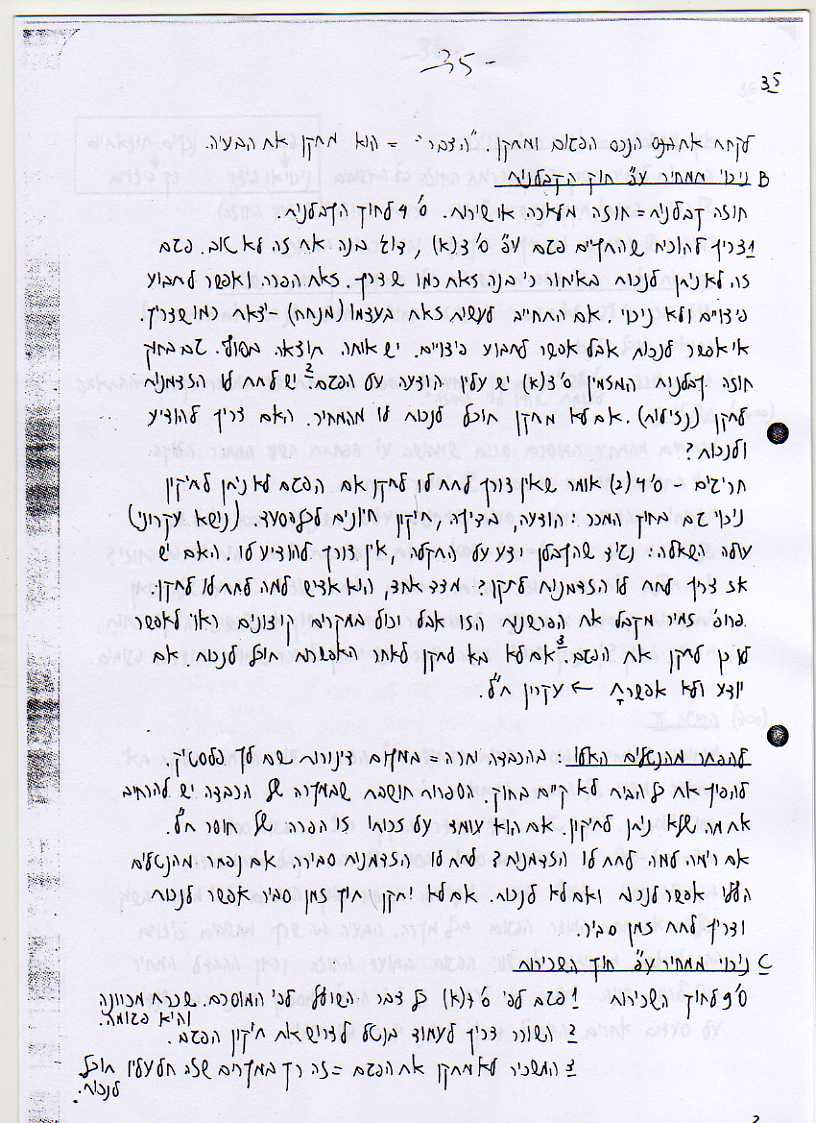 - 35 -
35
לקחת את הנכס הפגום ומתקן "הצבר" = הוא מתקן את הבעיה.
B ניכוי ממחיר עפ"י חוק הקבלנות
חוזה קבלנות = חוזה מלאכה או שירות. ס' 4 לחוק הקבלנות.
1 צריך להוכיח שהתקיים פגם עפ"י ס' 3(א), דוג' בנה את זה לא טוב. פגם
זה לא ניתן לנכות באיחור כי בנה זאת כמו שצריך. זאת הפרה ואפשר לתבוע
פיצויים ולא ניכוי. אם התחייב לעשות זאת בעצמו (מנתח) - יצאה כמו שצריך.
אי אפשר לנכות אבל אפשר לתבוע פיצויים. יש אותה תוצאה בסוף. גם בחוק
חוזה קבלנות המזמין ס' 3(א) יש עליו הודעה על הפגם. 2 יש לתת לו הזדמנות
לתקן (נזילות). אם לא מתקן תוכל לנכות לו מהמחיר. האם צריך להודיע
ולנכות?
חריגים - ס' 4(ב) אומר שאין צורך לתת לו לתקן אם הפגם לא ניתן לתיקון
ניכוי גם בחוק המכר: הודעה, בדיקה, תיקון חיוניים לכל הסעד. (נושא עקרוני)
עולה השאלה: נגיד שהקבלן ידע על התקלה, אין צורך להודיע לו. האם יש
אז צריך לתת לו הזדמנות לתקן? מצד אחד, הוא אדיש למה לתת לו לתקן.
פרופ' זמיר מקבל את הפרשנות הזו אבל יכול במקרים קיצוניים ראוי לאפשר
לו כן לתקן את הפגם. 3 אם לא בא לתקן לאחר האפשרות תוכל לנכות. אם
יודע ולא אפשרת ← עקרון תו"ל.
להפטר מהנטלים האלו: בהכבדה יתרה = במקום צינורות שם לך פלסטיק.
להפוך את כל הבית לא קיים בחוק. הספרות חושבת שבמקרה של הכבדה יש להרחיב
את מה שלא ניתן לתיקון. אם הוא עומד על זכותו זו הפרה של חוסר תו"ל.
אם רימה למה לתת לו הזדמנות? לתת לו הזדמנות סבירה. אם נפטרת מהנטלים
הללו אפשר לנכות ואם לא לנכות. אם לא יתקן תוך זמן סביר אפשר לנכות
וצריך לתת זמן סביר.
C ניכוי ממחיר עפ"י חוק השכירות
ס' 9 לחוק השכירות 1 פגם לפי ס' 7(א) כל דבר השולל לפי המוסכם. שכרת מכוונה
והיא פגומה.
2 השוכר צריך לעמוד בנטל לדרוש את תיקון הפגם.
3 המשכיר לא מתקן את הפגם = זה רק במקרים שזה חל עליו תוכל
לנכות.